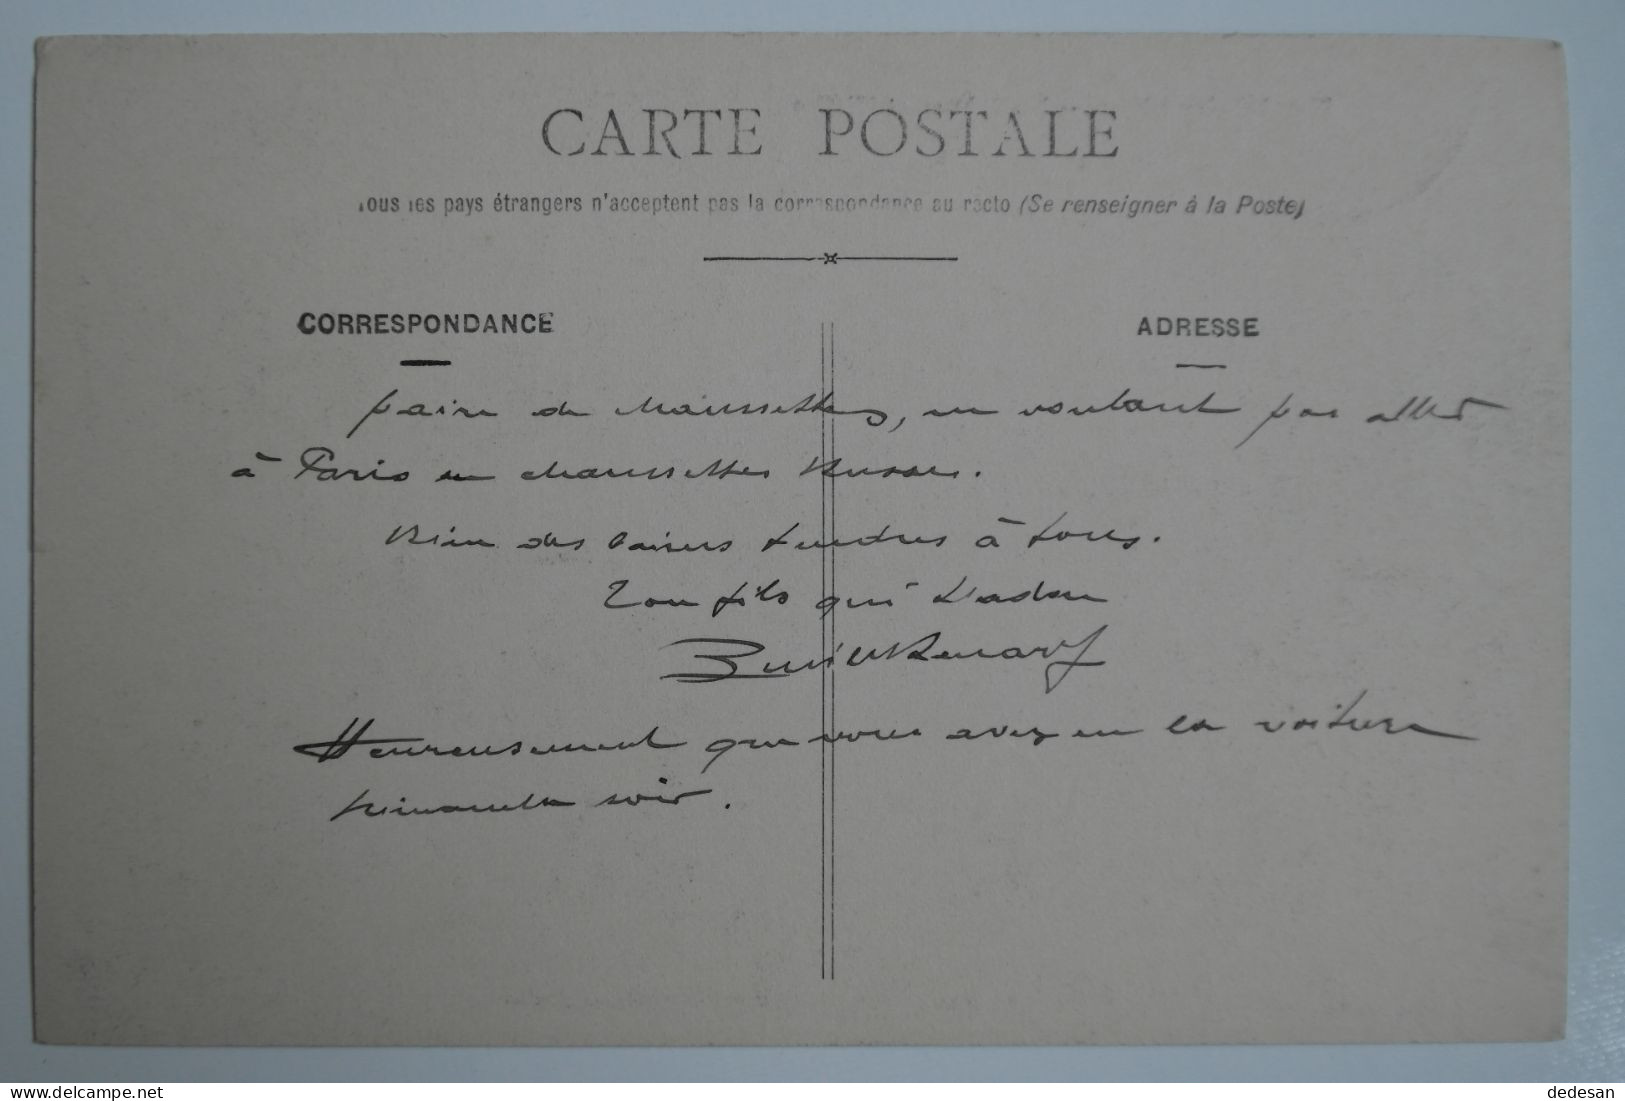 CARTE POSTALE
Tous les pays étrangers n'acceptent pas la correspondance au recto (Se renseigner à la Poste)
CORRESPONDANCE
ADRESSE
paire de chaussettes, ne voulant pas aller
à Paris en chaussettes russes.
Bien des baisers tendres à tous.
Ton fils qui t'adore
Heureusement que vous avez eu la voiture
dimanche soir.
delcampe.net
dedesan